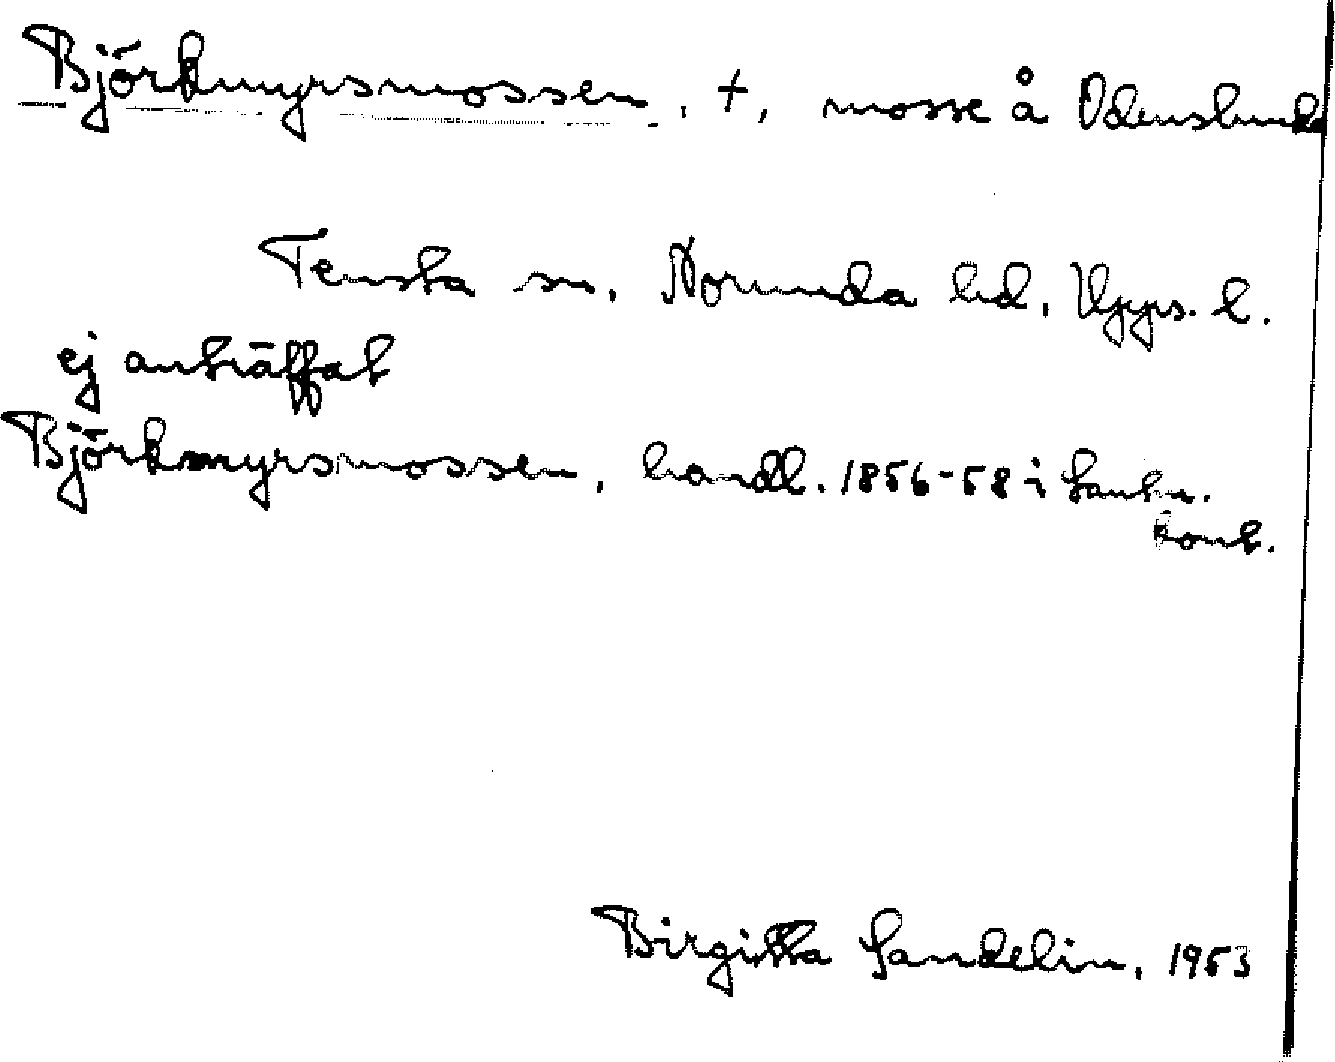 Björkmyrsmossen, +, mosse å Odenslunda
Tensta sn. Norunda hd. Upps. l.
ej anträffat
Björkmyrsmossen, handl. 1856-58 i Lantm.
kont.
Birgitta Sandelin, 1953